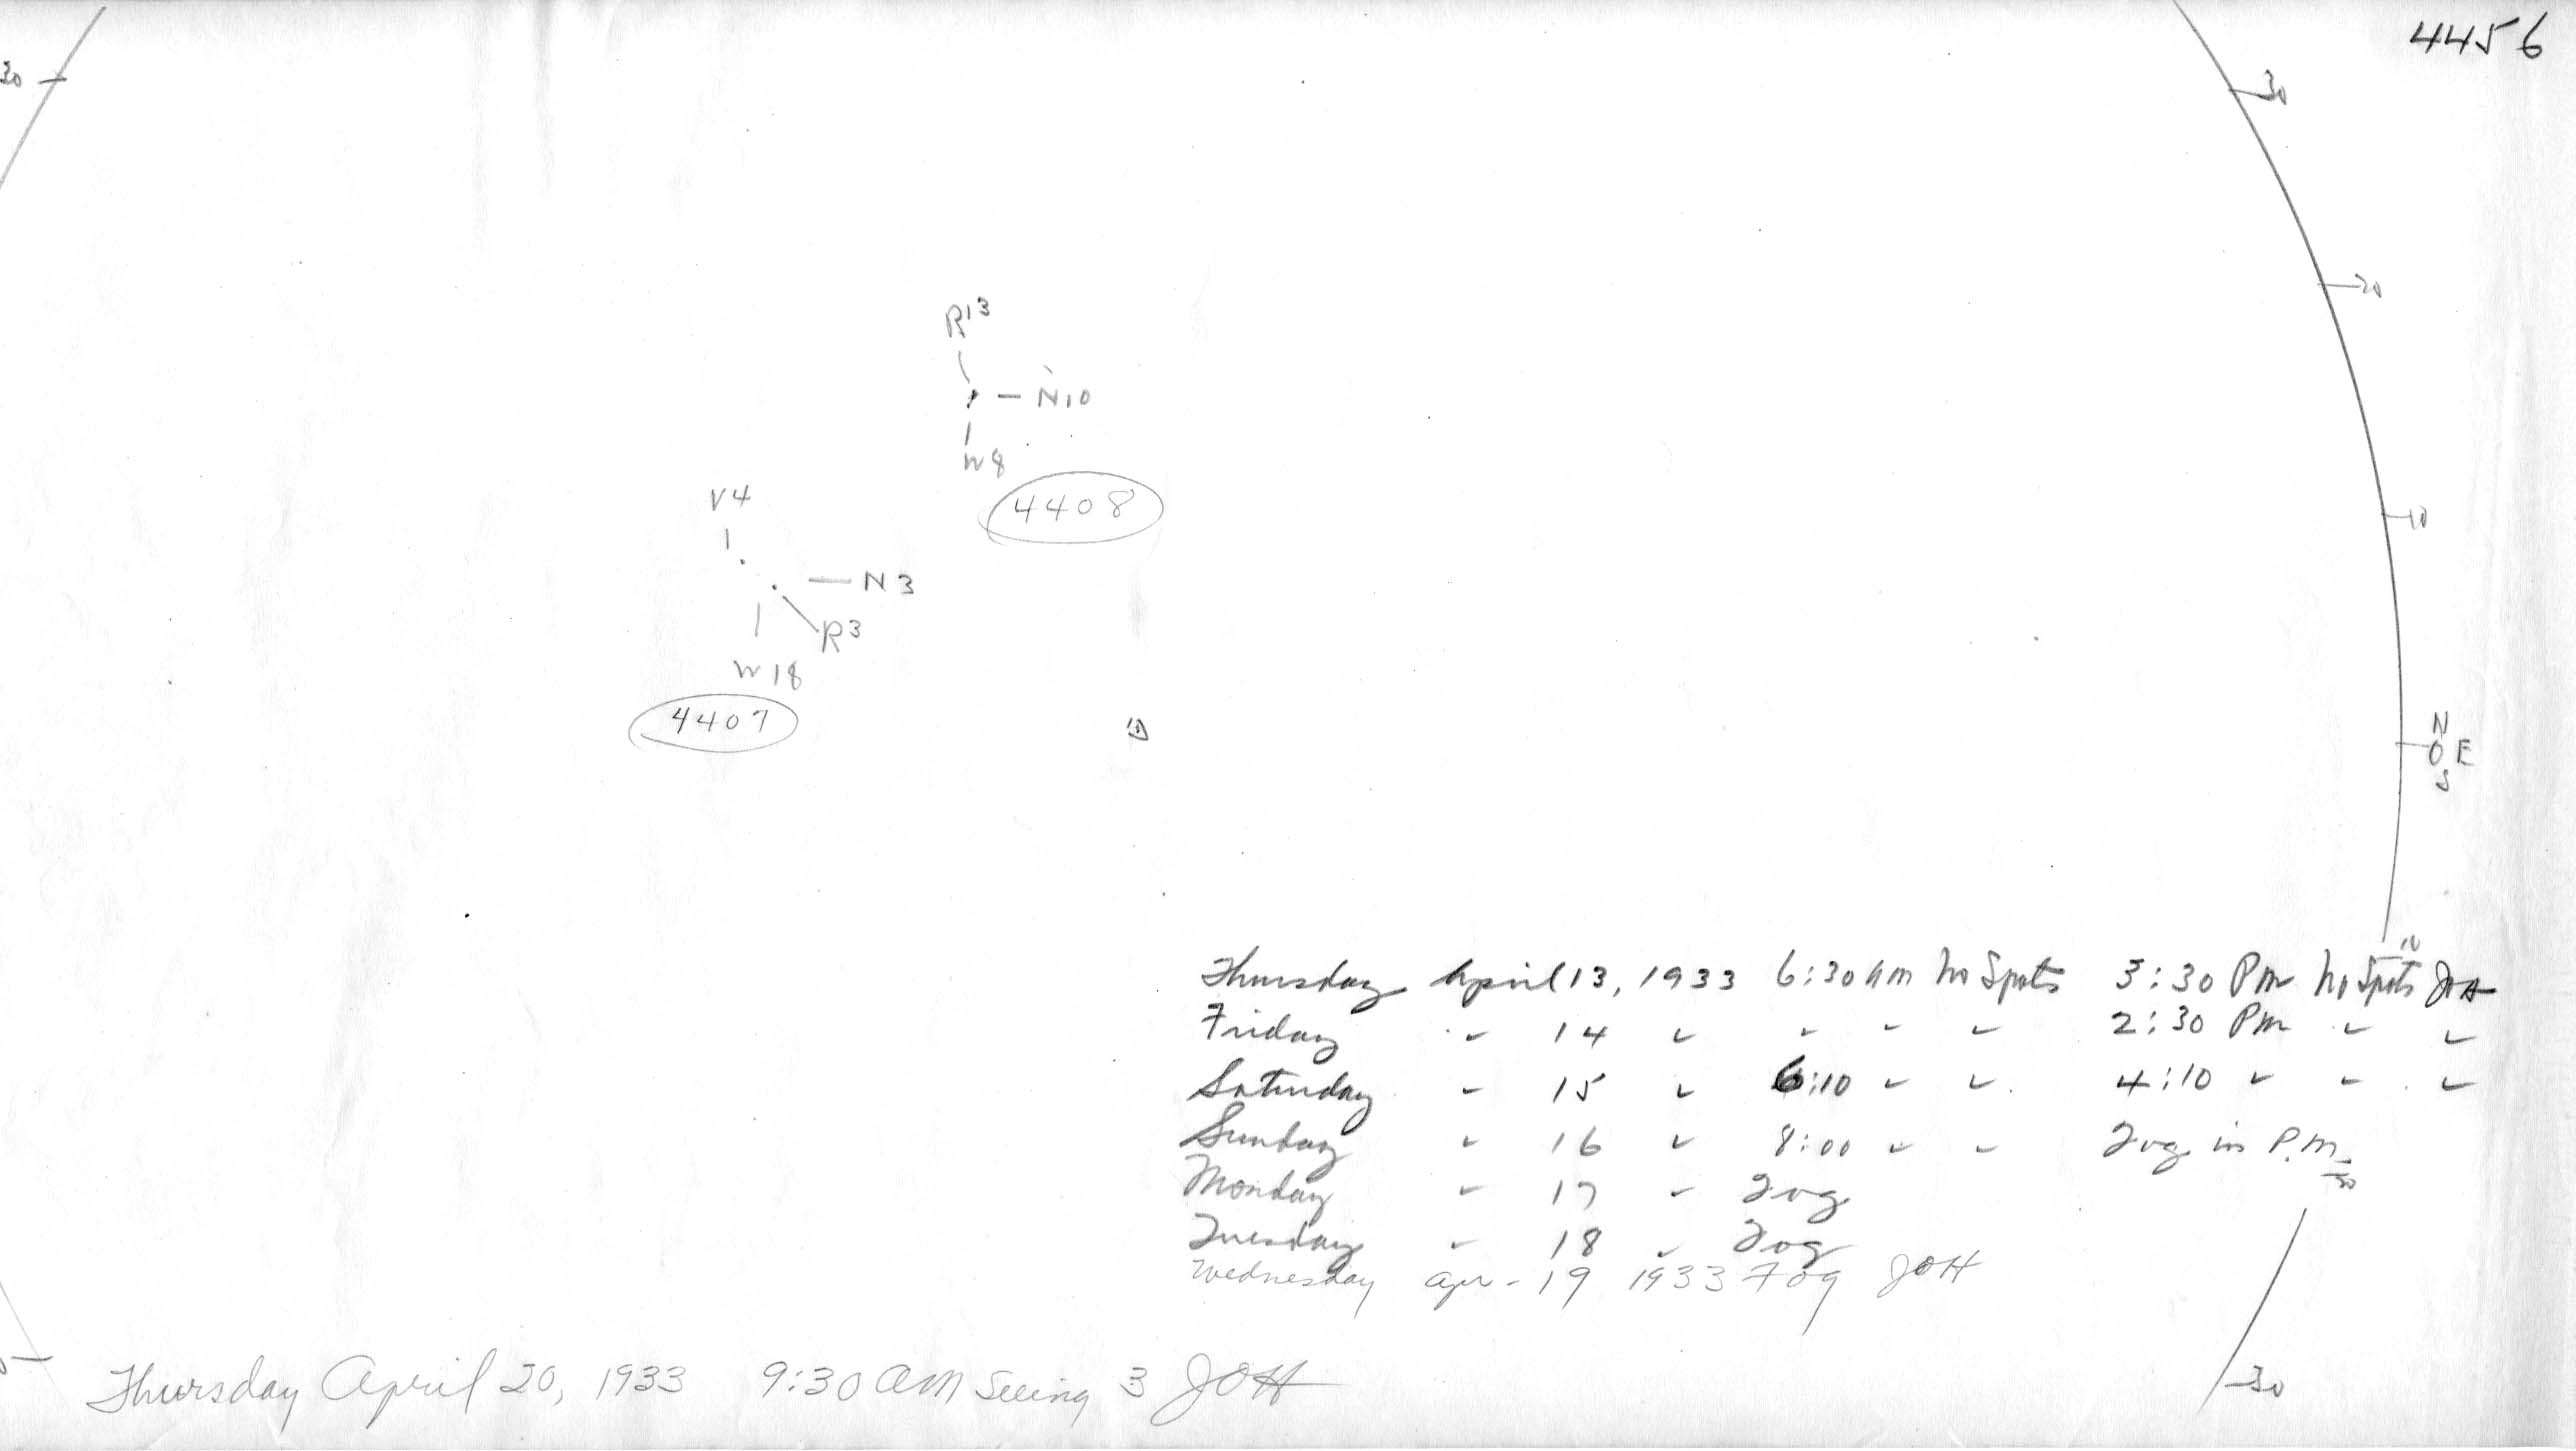 4456
30
30
20
R13
N10
W8
4408
V4
10
N3
R3
W18
4407
N
0 E
S
10
Thursday April 13, 1933 6:30 AM No Spots 3:30 PM No Spots JOH
Friday " 14 " " " " 2:30 PM " "
Saturday " 15 " 6:10 " " 4:10 " " "
Sunday " 16 " 8:00 " " Fog in P.M.
20
Monday " 17 " Fog
Tuesday " 18 " Fog
Wednesday Apr - 19 1933 Fog JOH
Thursday April 20, 1933 9:30 AM Seeing 3 JOH
30